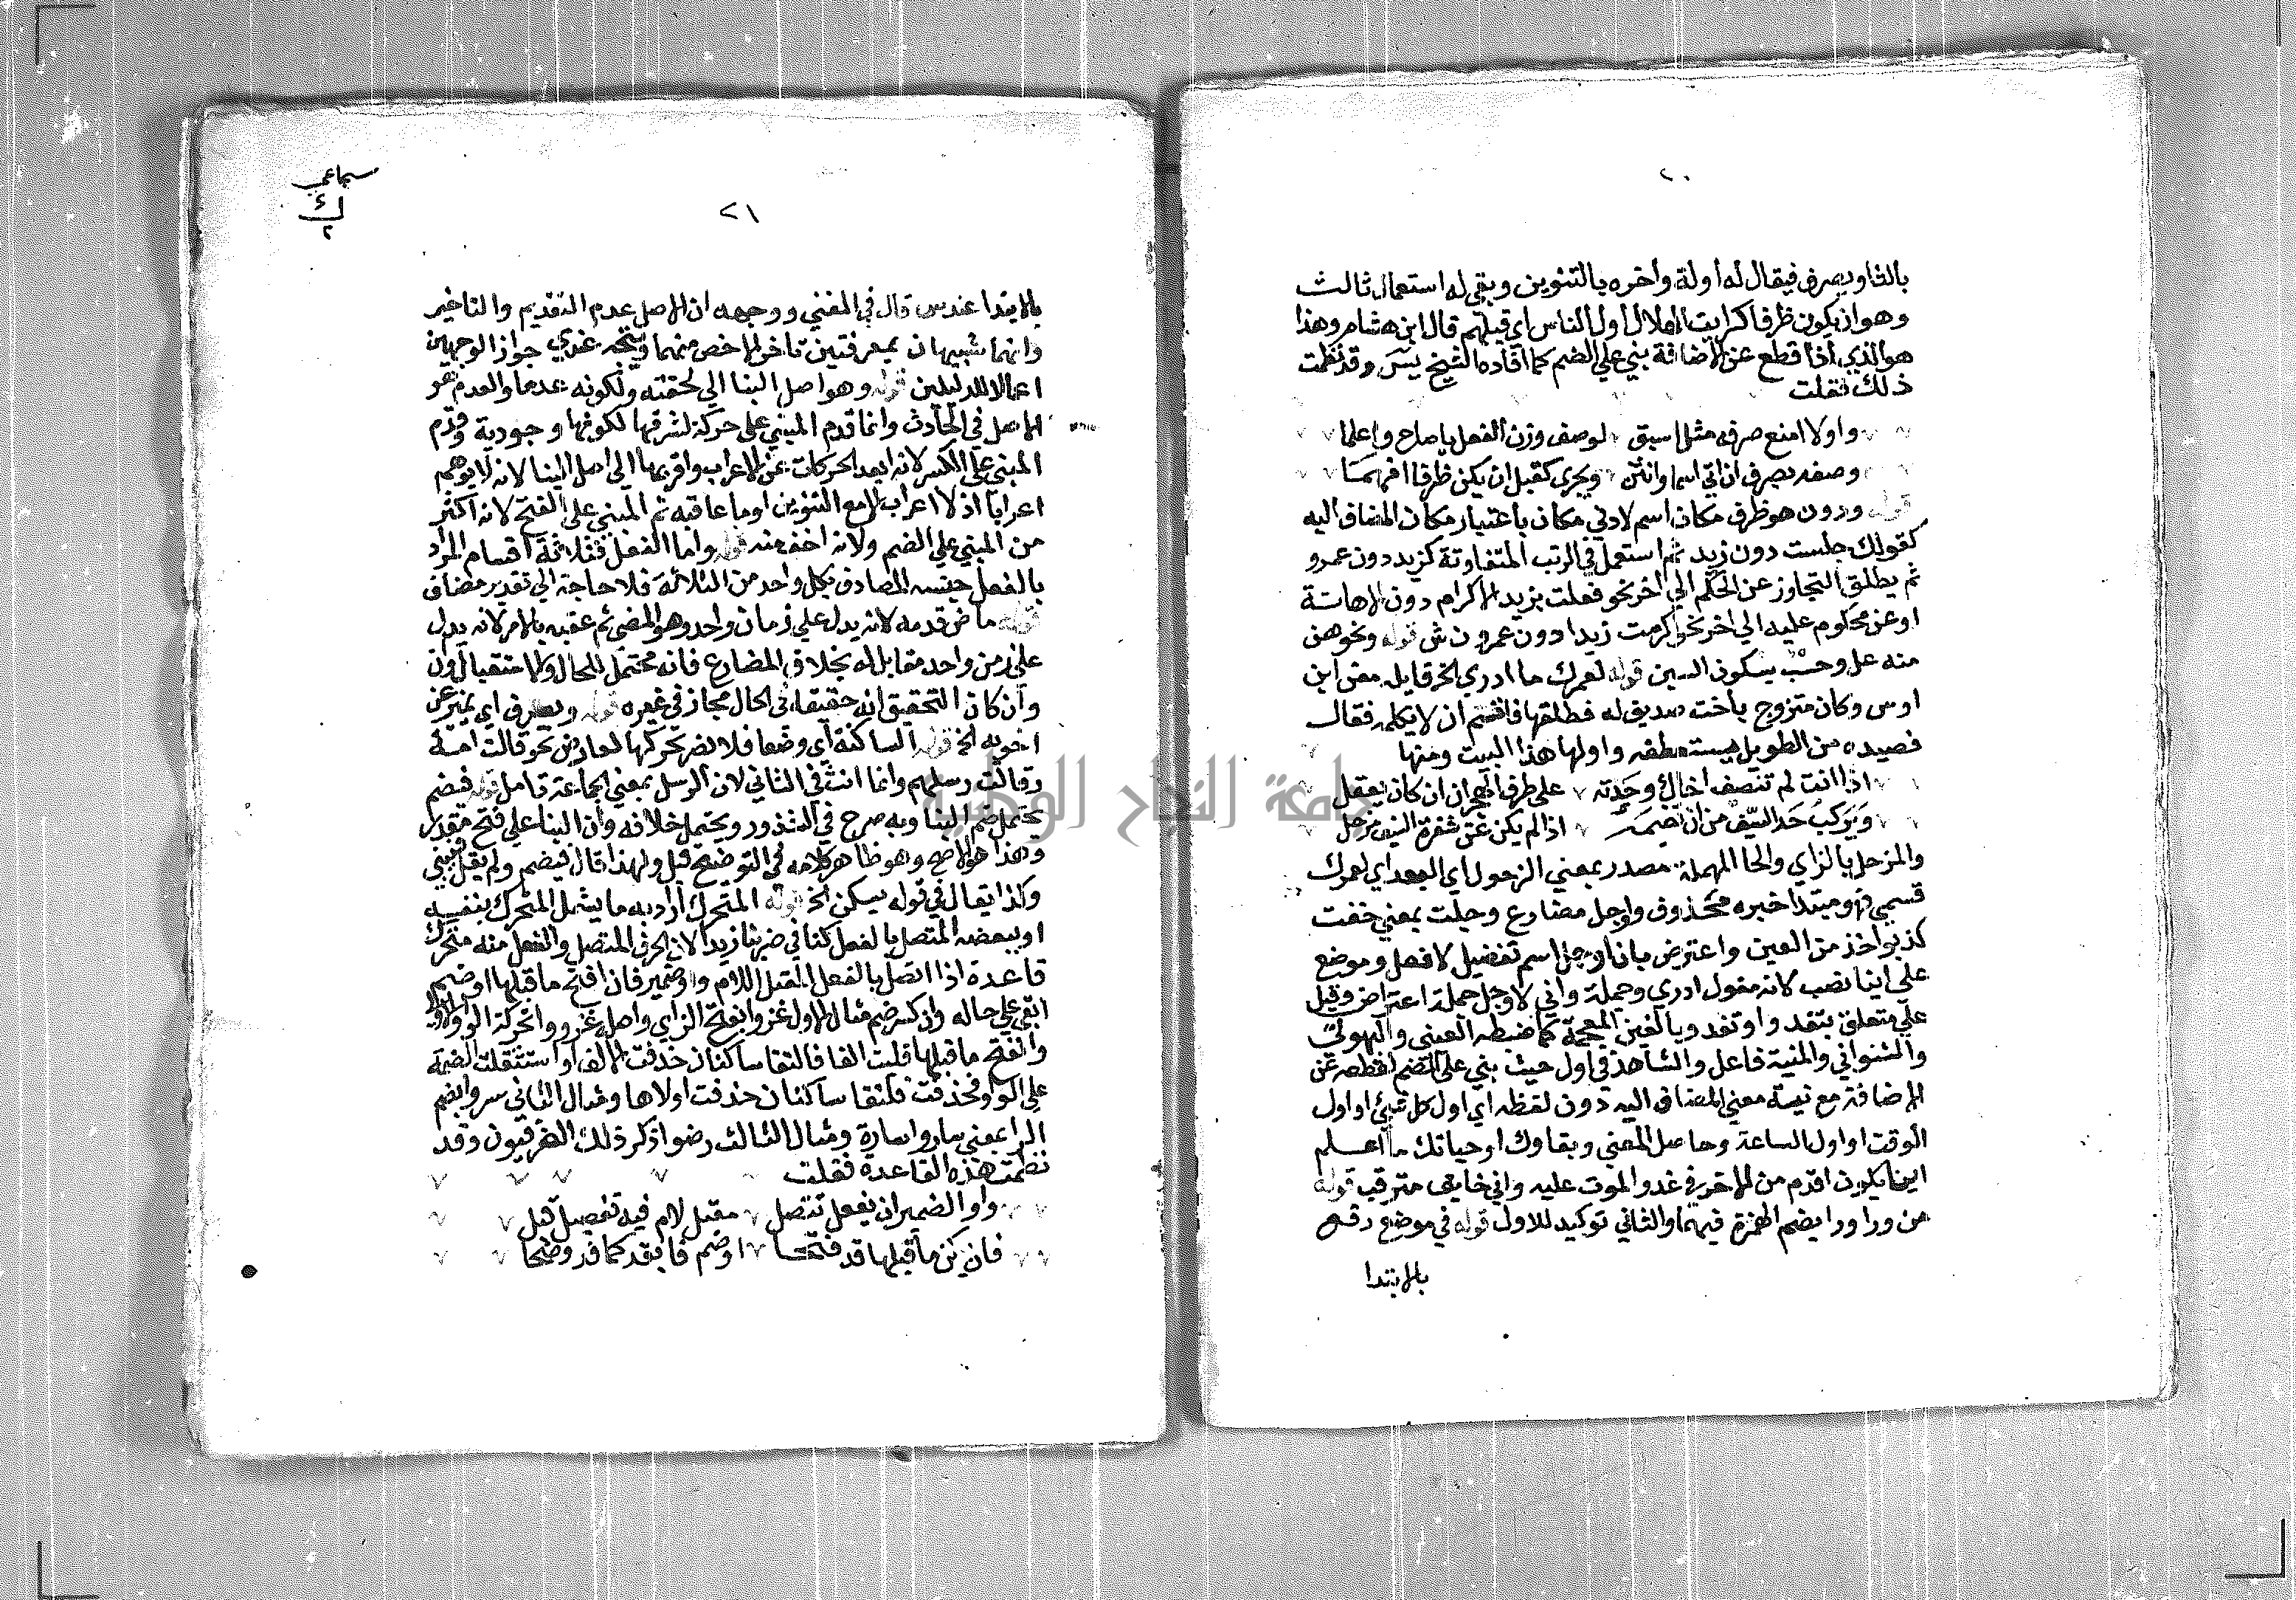 ٢٠
بالتا ويصرف فيقال له أولة وأخره بالتنوين وبقي له استعمال ثالث
وهو ان يكون ظرفا كرايت الهلال أول الناس اي قبلهم قال ابن هشام وهذا
هو الذي اذا قطع عن الاضافة بني علي الضم كما افاده الشيخ يس وقد نظمت
ذلك فقلت
واولا امنع صرفه مثل اسبق لوصف وزن الفعل يا صاح واعلما
وصفه بصرف ان اتي اسما وانثن ويجري كقبل ان يكن ظرفا افهما
قوله ودون هو ظرف مكان اسم لادني مكان باعتبار مكان المضاف اليه
كقولك جلست دون زيد ثم استعمل في الرتب المتفاوتة كزيد دون عمرو
ثم يطلق التجاوز عن الحكم الي اخر نحو فعلت بزيد الاكرام دون الاهانة
او عن محكوم عليه الي اخر نحو اكرمت زيدا دون عمرو ن ش قوله ونحوهن
منه عل وحسب بسكون السين قوله لعمرك ما ادري الخ قايله معن ابن
اوس وكان متزوج باخت صديق له فطلقها فاقسم ان لا يكلمه فقال
قصيده من الطويل يستعطفه واولها هذا البيت ومنها
اذا انت لم تنصف اخاك وجدته علي طرف الهجران ان كان يعقل
ويركب حد السيف من ان تضيمه اذا لم يكن عن شفرة السيف مزحل
والمزحل بالزاي والحا المهملة مصدر بمعني الزحول اي البعد اي لعمرك
قسمي فهو مبتدا خبره محذوف واوجل مضارع وجلت بمعني خفت
كذ بواخذ من العين واعترض بان اوجل اسم تفضيل لا فعل وموضع
علي اينا نصب لانه مفعول ادري وجملة واني لاوجل جملة اعتراض وقيل
علي متعلق بتغدو او تغدو بالغين المعجمة كما ضبطه العيني والبهوتي
والشنواني والمنية فاعل والشاهد في اول حيث بني علي الضم لقطعه عن
الاضافة مع نية معني المضاف اليه دون لفظه اي اول كل شيئ او اول
الوقت او اول الساعة وحاصل المعني وبقاوك او حياتك ما اعلم
اينا يكون اقدم من الاخر في غدو الموت عليه واني خايف مترقب قوله
من ورا ورا بضم الهمزة فيهما والثاني توكيد للاول قوله في موضع رفع
بالابتدا
سجاعي
٢١
بالابتدا عند س قال في المغني ووجهه ان الاصل عدم التقديم والتاخير
وانهما شبيهان بمعرفتين تاخر الاخص منهما ويتجه عندي جواز الوجهين
اعمالا للدليلين قوله وهو اصل البنا اي لخفته ولكونه عدما والعدم هو
الاصل في الحادث وانما قدم المبني علي حركة لشرفها لكونها وجودية وقدم
المبني علي الكسر لانه ابعد الحركات عن الاعراب واقربها الي اصل البنا لانه لا يوهم
اعرابا اذ لا اعراب الا مع التنوين او ما عاقبه ثم المبني علي الفتح لانه اكثر
من المبني علي الضم ولانه اخف منه قوله واما الفعل فثلاثة اقسام المراد
بالفعل جنسه الصادق بكل واحد من الثلاثة فلا حاجة الي تقدير مضاف
قوله ماض قدمه لانه يدل علي زمان واحد وهو المضي ثم عقبه بالامر لانه يدل
علي زمن واحد مقابل له بخلاف المضارع فانه محتمل للحال والاستقبال دون
وان كان التحقيق انه حقيقة في الحال مجاز في غيره قوله ويعرف اي يميز عن
اخويه الخ قوله الساكنة اي وضعا فلا يضر تحركها لعارض نحو قالت امة
وقالت رسلهم وانما انث في الثاني لان الرسل بمعني الجماعة تامل قوله فيضم
يحتمل ضم البنا وبه صرح في الشذور ويحتمل خلافه وان البنا علي فتح مقدر
وهذا هو الاصح وهو ظاهر كلامه في التوضيح قبل ولهذا قال فيضم ولم يقل فيبني
وكذا يقال في قوله يسكن الخ قوله المتحرك اراد به ما يشمل المتحرك بنفسه
او ببعضه المتصل بالفعل كنا في ضربنا زيدا لان الحرف المتصل والفعل منه متحرك
قاعدة اذا اتصل بالفعل المعتل اللام واو ضمير فان افتح ما قبلها او ضم
ابقي علي حاله وان كسر ضم مثال الاول غزوا بفتح الزاي واصله غزووا تحركة الواو الاولي
وانفتح ما قبلها قلبت الفا فالتقا ساكنان حذفت الالف او استثقلت الضمة
علي الواو فحذفت فالتقا ساكنان حذفت اولاها ومثال الثاني سروا بضم
الرا بمعني ساروا سارة ومثال الثالث رضوا ذكر ذلك الصرفيون وقد
نظمت هذه القاعدة فقلت
واو الضمير ان بفعل تتصل معتل لام فيه تفصيل قبل
فان يكن ما قبلها قد فتحا او ضم فابقه كما قد وضحا
جامعة النجاح الوطنية